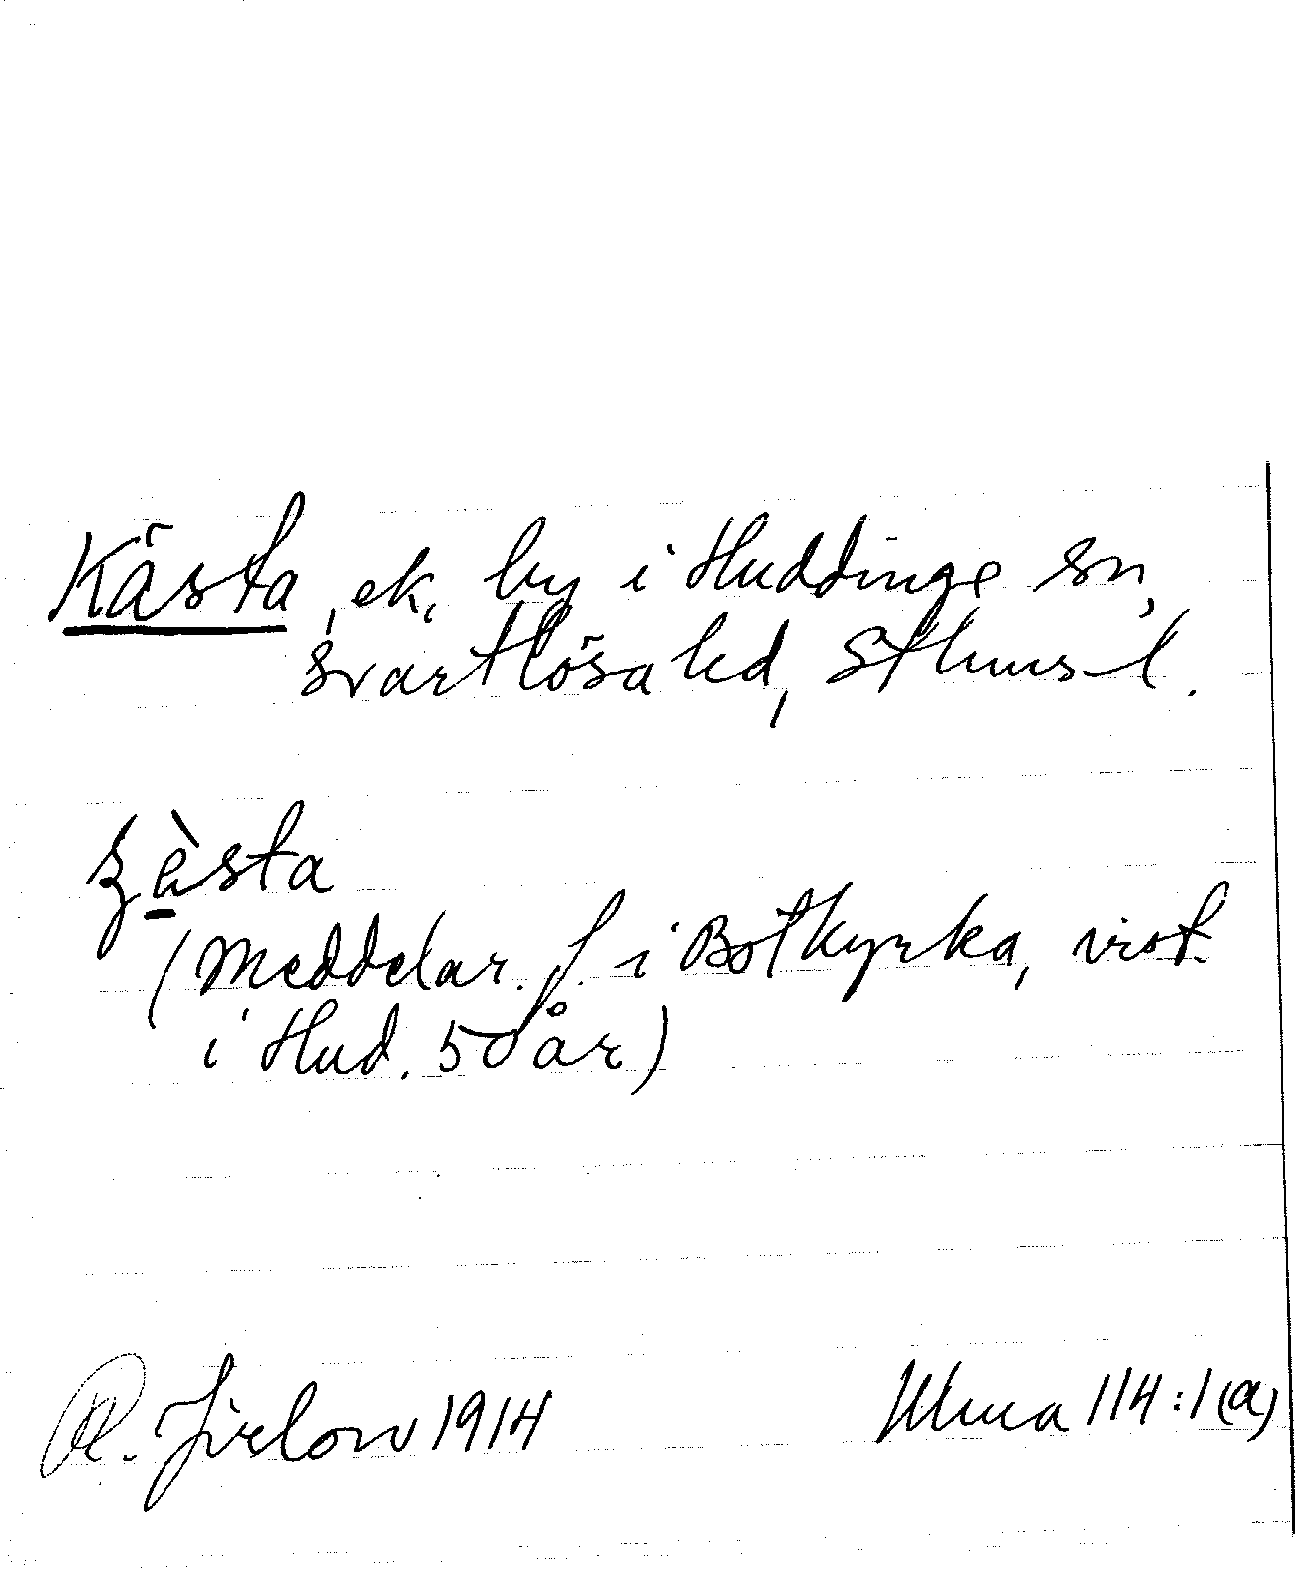 Kästa, ek, by i Huddinge sn,
Svartlösa hd, Sthms l.
ʒèsta
(Meddelar. f. i Botkyrka, vist.
i Hud. 50 år)
R. Jirlow 1914
Ulma 114:1(a)